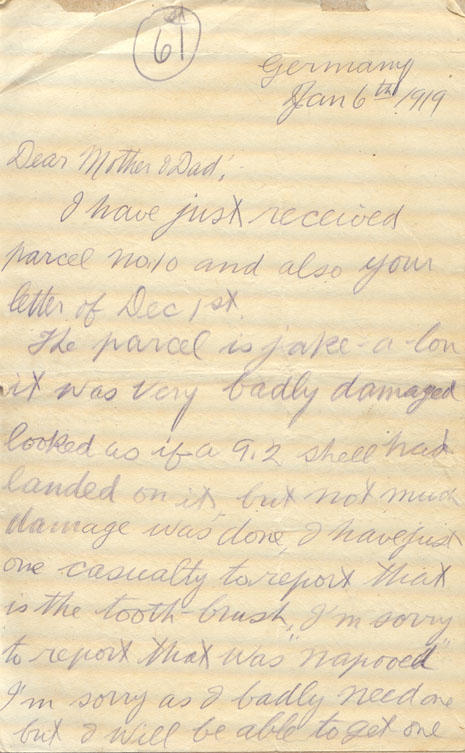 61
Germany
Jan 6th 1919
Dear Mother & Dad,
I have just received
parcel No 10 and also your
letter of Dec 1st.
The parcel is jake-a-lou
it was very badly damaged
looked as if a 9.2 shell had
landed on it, but not much
damage was done, I have just
one casualty to report that
is the tooth-brush, I'm sorry
to report that was "napooed"
I'm sorry as I badly need one
but I will be able to get one